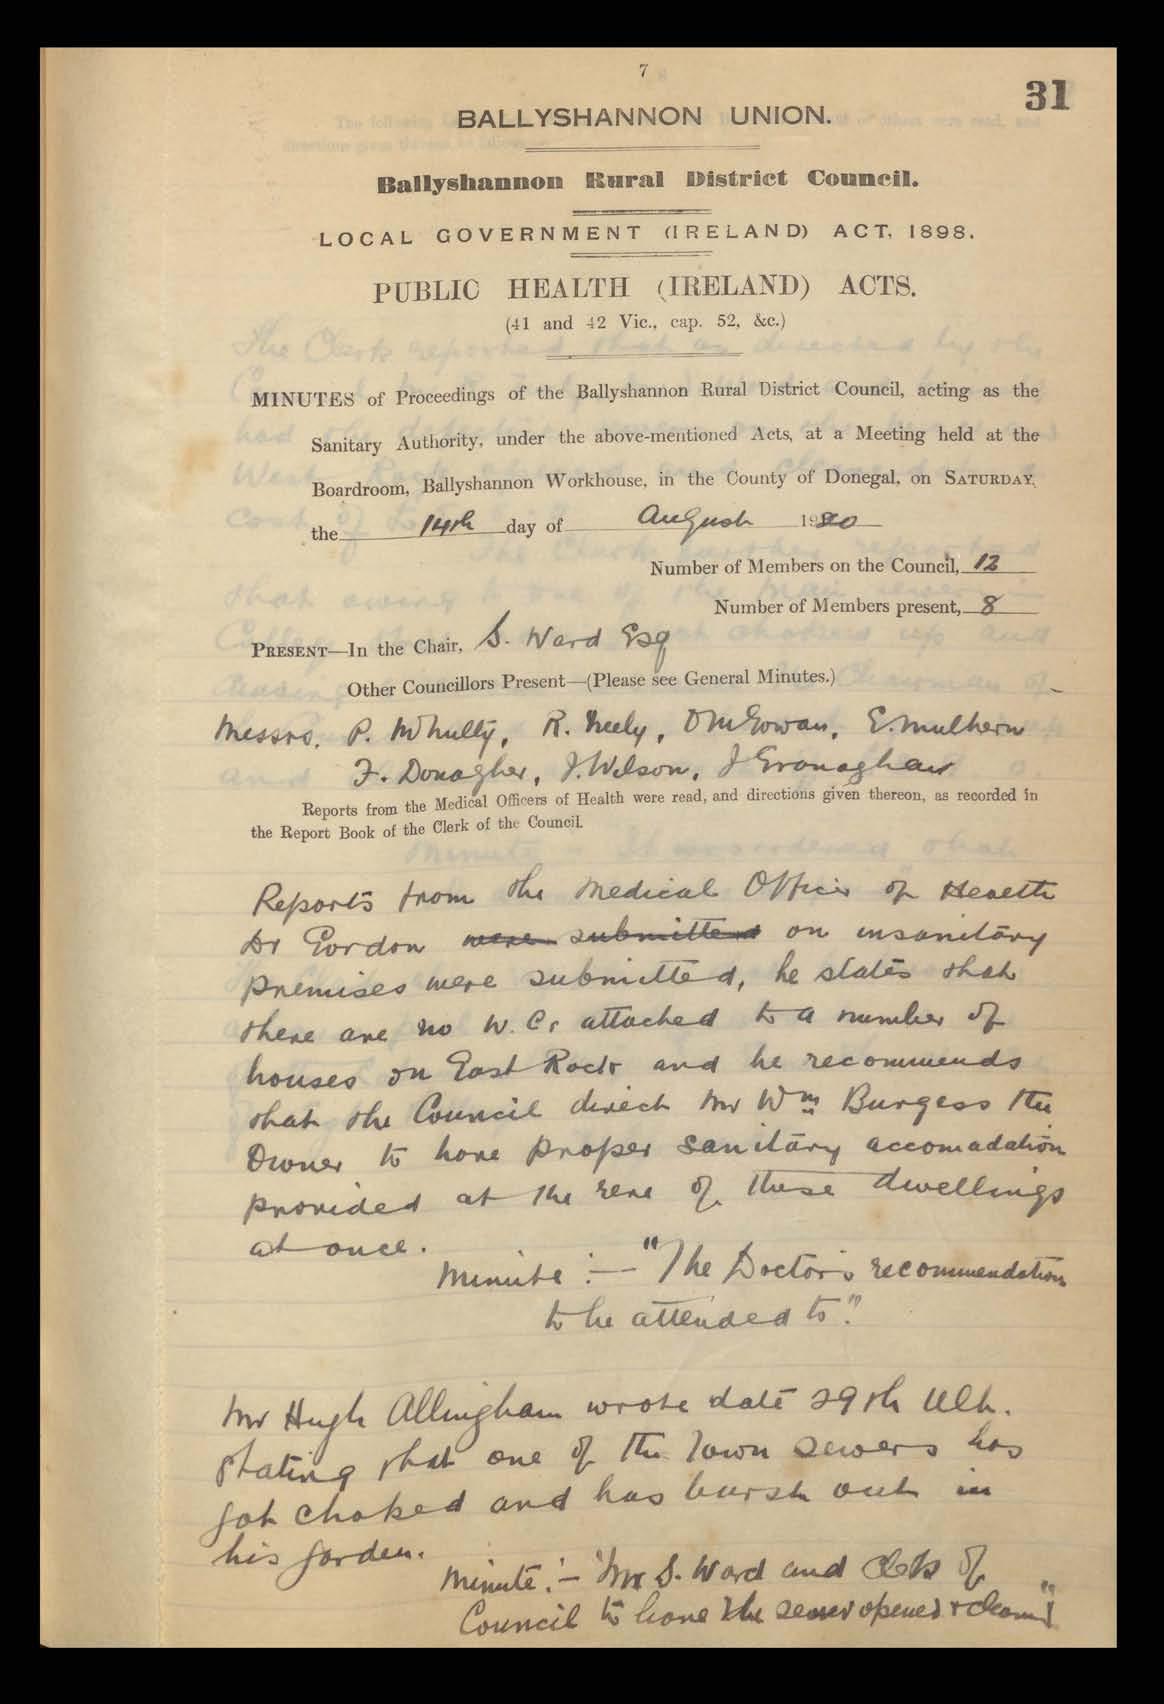 7
31
BALLYSHANNON UNION.
Ballyshannon Rural District Council.
LOCAL GOVERNMENT (IRELAND) ACT, 1898.
PUBLIC HEALTH (IRELAND) ACTS.
(41 and 42 Vic., cap. 52, &c.)
MINUTES of Proceedings of the Ballyshannon Rural District Council, acting as the
Sanitary Authority, under the above-mentioned Acts, at a Meeting held at the
Boardroom, Ballyshannon Workhouse, in the County of Donegal, on SATURDAY,
the 14th day of August 1920
Number of Members on the Council, 12
Number of Members present, 8
PRESENT—In the Chair, S. Ward Esq
Other Councillors Present—(Please see General Minutes.)
Messrs. P. McNulty, R. Neely, D McGowan, E. Mulhern
F. Donagher, J. Wilson, J Gronaghan
Reports from the Medical Officers of Health were read, and directions given thereon, as recorded in
the Report Book of the Clerk of the Council.
Reports from the Medical Officer of Health
Dr Gordon were submitted on insanitary
premises were submitted, he states that
there are no W. Cs attached to a number of
houses on East Rock and he recommends
that the Council direct Mr Wm Burgess the
Owner to have proper sanitary accomadation
provided at the rere of these dwellings
at once.
Minute :— "The Doctor's recommendation
to be attended to".
Mr Hugh Allingham wrote date 29th Ult.
stating that one of the Town sewers has
got choked and has burst out in
his garden.
Minute :- "Mr S. Ward and Clerk of
Council to have the sewer opened & cleaned"